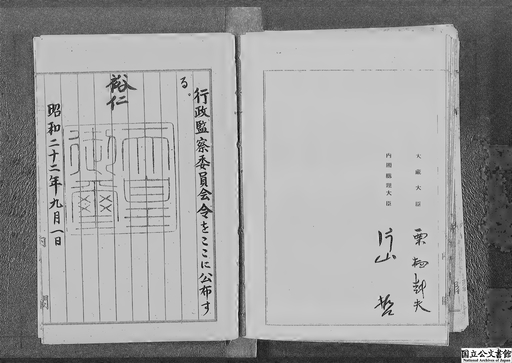 大藏大臣 栗栖赳夫
内閣總理大臣 片山哲
行政監察委員会令をここに公布す
る。
裕仁
天皇
御璽
昭和二十二年九月一日
内閣
国立公文書館
National Archives of Japan